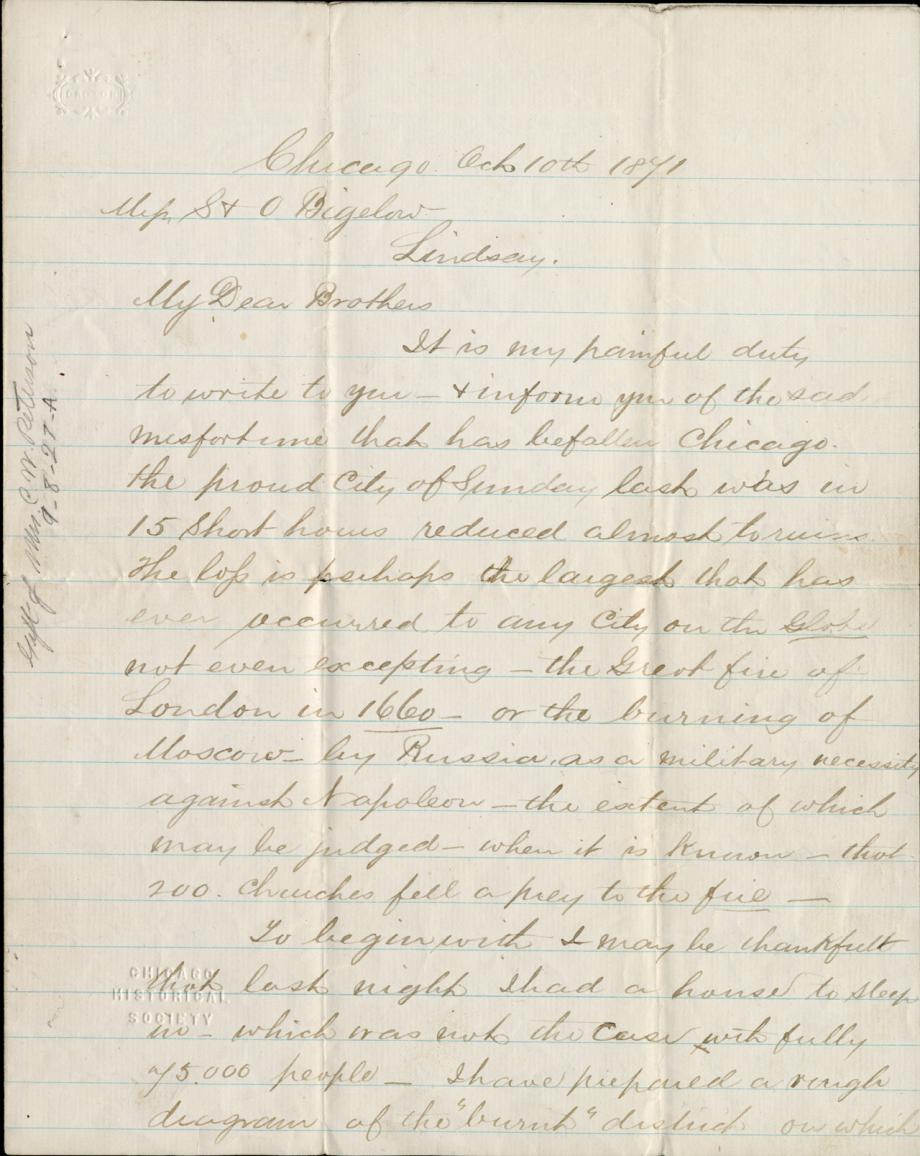 Chicago Oct 10th 1871
Mess S & O Bigelow
Lindsay.
My Dear Brothers
It is my painful duty
to write to you — & inform you of the sad
misfortune that has befallen Chicago.
the proud City of Sunday last was in
15 Short hours reduced almost to ruins.
The loss is perhaps the largest that has
ever occurred to any City on the Globe
not even excepting — the Great fire of
London in 1660 — or the burning of
Moscow — by Russia, as a military necessity
against Napoleon — the extent of which
may be judged — when it is known — that
200. Churches fell a prey to the fire —
To begin with I may be thankfull
that last night I had a house to sleep
in — which was not the case with fully
75.000 people — I have prepared a rough
diagram of the "burnt" district on which
Gift of Mrs. C. W. Peterson
9-8-27-A.
CHICAGO
HISTORICAL
SOCIETY